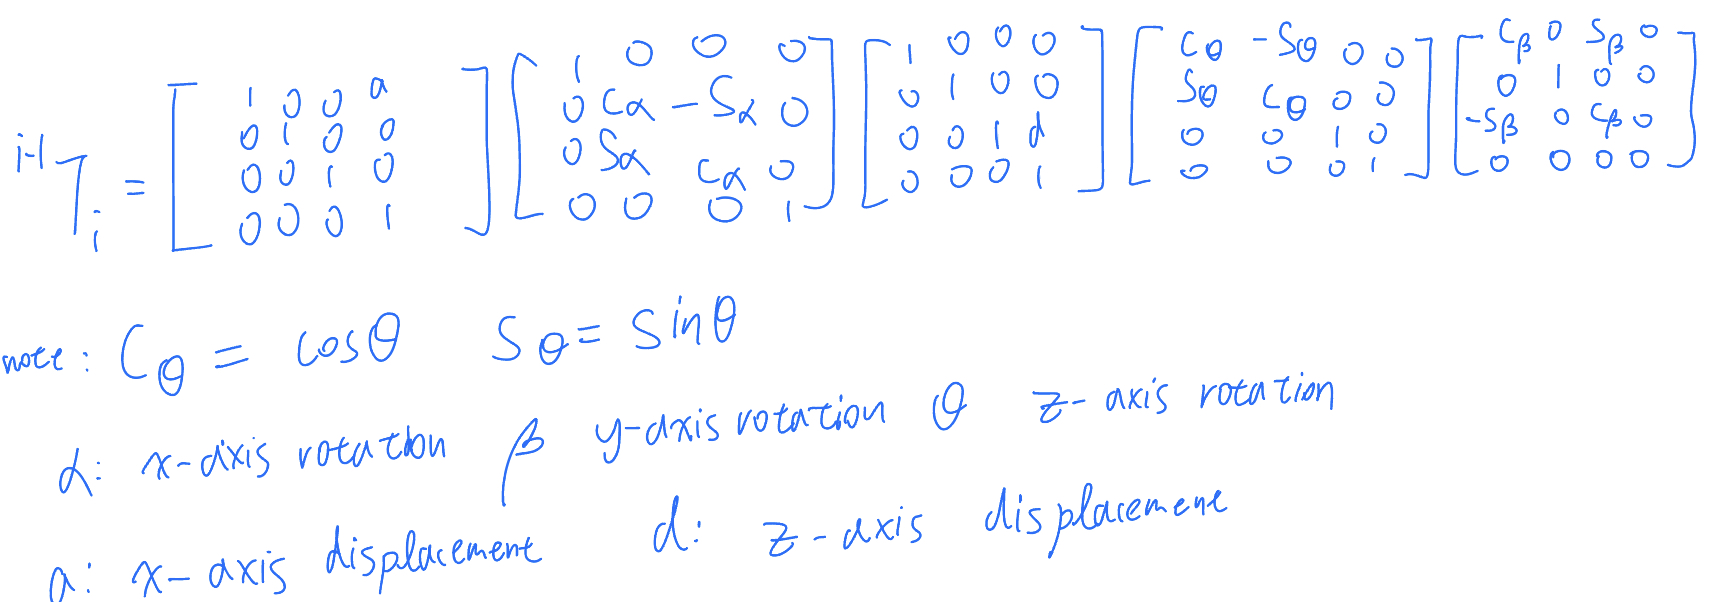 ^{i-1}T_i = [1 0 0 a; 0 1 0 0; 0 0 1 0; 0 0 0 1] [1 0 0 0; 0 Cα -Sα 0; 0 Sα Cα 0; 0 0 0 1] [1 0 0 0; 0 1 0 0; 0 0 1 d; 0 0 0 1] [Cθ -Sθ 0 0; Sθ Cθ 0 0; 0 0 1 0; 0 0 0 1] [Cβ 0 Sβ 0; 0 1 0 0; -Sβ 0 Cβ 0; 0 0 0 0]
note: C_θ = cosθ S_θ = sinθ
α: x-axis rotation β y-axis rotation θ z-axis rotation
a: x-axis displacement d: z-axis displacement